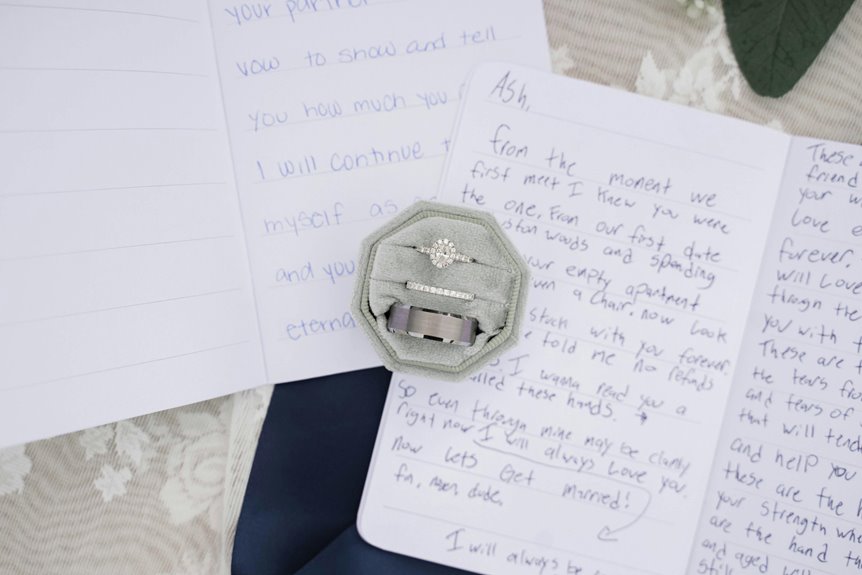 your partner
vow to show and tell
you how much you
I will continue
myself as
and you
eterna
Ash,
from the moment we
first meet I knew you were
the one. From our first date
woods and spending
your empty apartment
a chair. now look
stuck with you forever.
told me no refunds
I wanna read you a
called these hands.
So even through mine may be clamy
right now I will always love you.
now lets Get married!
I will always be
These
friend
your
Love
forever.
will Love
throgh the
you with
These are
the tears from
and tears of
that will tend
and help you
these are the h
your strength whe
are the hand th
and aged
still